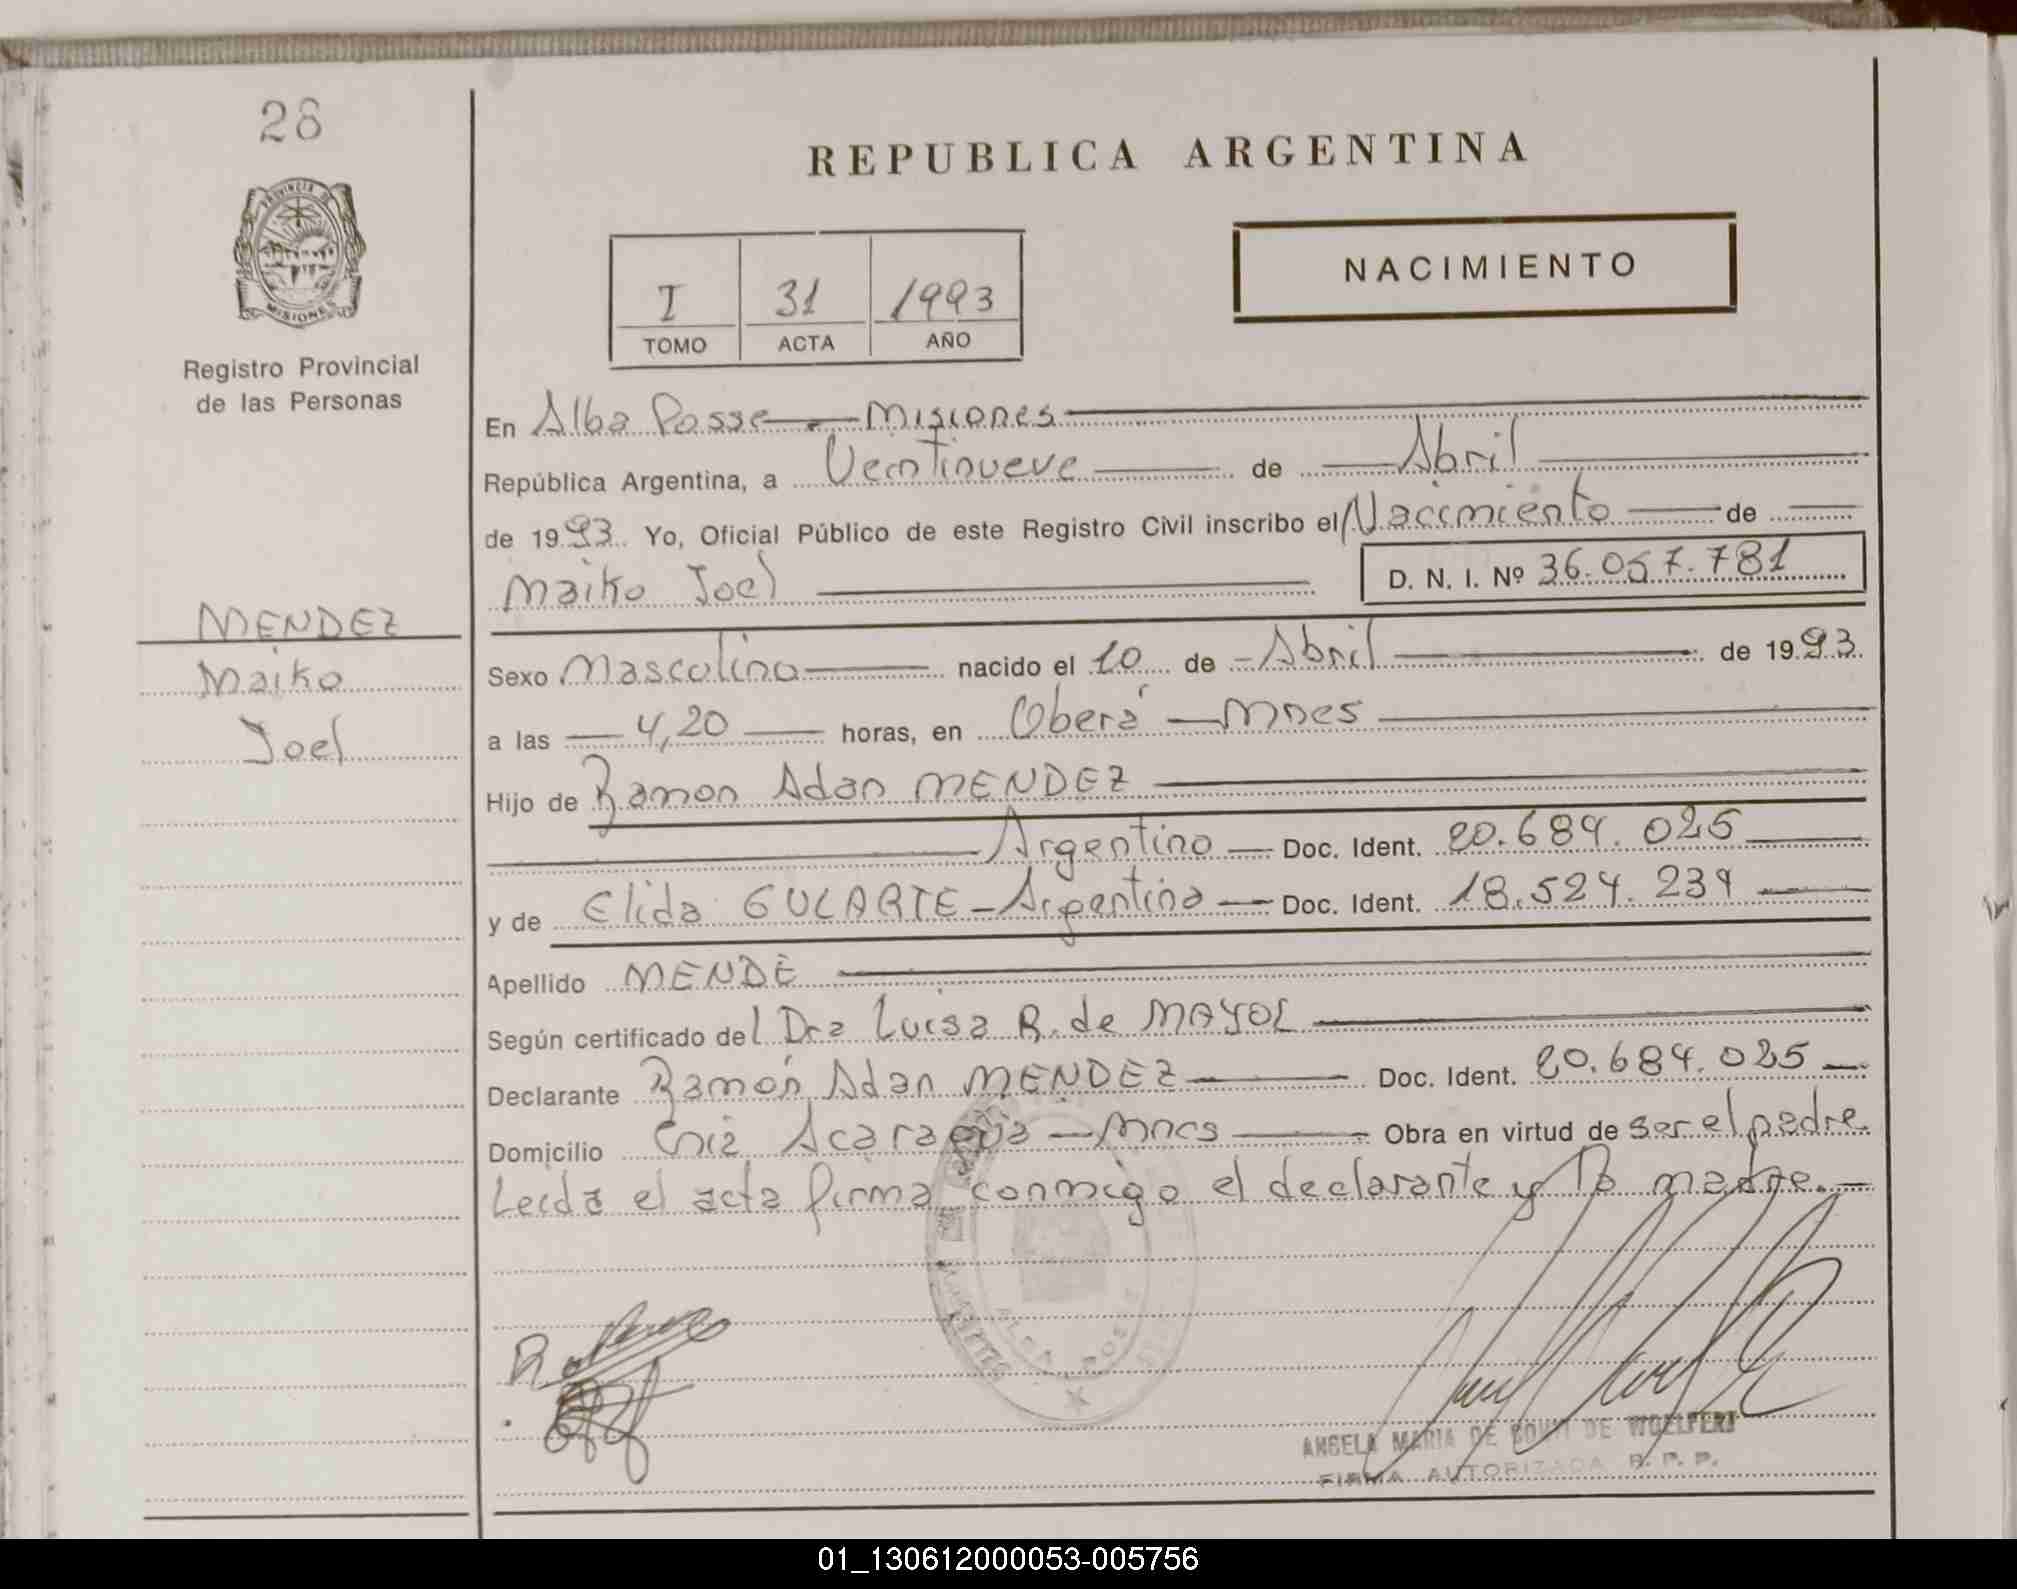 28
REPUBLICA ARGENTINA
PROVINCIA DE
MISIONES
NACIMIENTO
I 31 1993
TOMO ACTA AÑO
Registro Provincial
de las Personas
En Alba Posse — Misiones
República Argentina, a Veintinueve de Abril
de 1993 Yo, Oficial Público de este Registro Civil inscribo el Nacimiento de
Maiko Joel D. N. I. Nº 36.057.781
MENDEZ
Maiko
Joel
Sexo Masculino nacido el 10 de Abril de 1993
a las 4,20 horas, en Oberá — Mnes
Hijo de Ramon Adan MENDEZ
Argentino — Doc. Ident. 20.684.025
y de Elida GULARTE - Argentina — Doc. Ident. 18.524.239
Apellido MENDE
Según certificado del Dra Luisa R. de MAYOL
Declarante Ramón Adan MENDEZ Doc. Ident. 20.684.025
Domicilio Acaragua — Mnes Obra en virtud de ser el padre.
Leida el acta firma conmigo el declarante y la madre.
ALBA POSSE
ANGELA MARIA DE DE WOELFERT
FIRMA AUTORIZADA R. P. P.
01_130612000053-005756